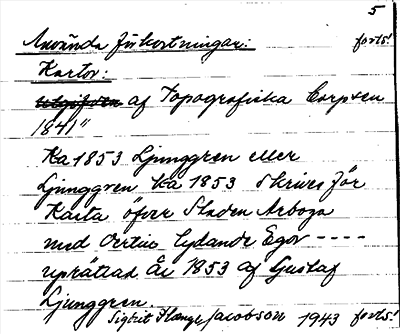 5
Använda förkortningar: forts!
Kartor:
utgifven af Topografiska Corpsen
1841"
Ka 1853 Ljunggren eller
Ljunggren Ka 1853 skrives för
Karta öfver Staden Arboga
med dertill lydande Egor ----
upprättad År 1853 af Gustaf
Ljunggren.
Sigbrit Plænge Jacobson 1943 forts!